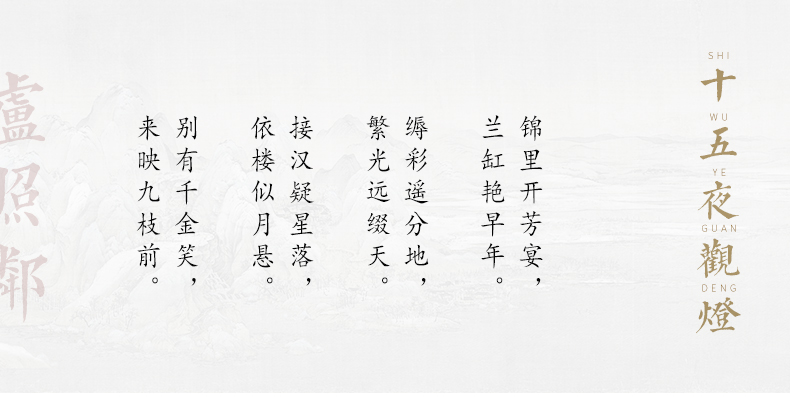 SHI
十
WU
五
YE
夜
GUAN
觀
DENG
燈
锦里开芳宴，
兰缸艳早年。
缛彩遥分地，
繁光远缀天。
接汉疑星落，
依楼似月悬。
别有千金笑，
来映九枝前。
盧照鄰